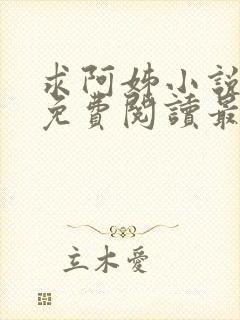 求阿姊小說
免費閱讀最
立木愛